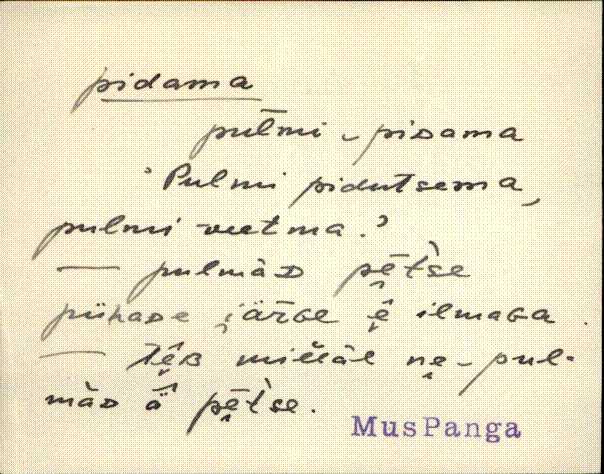 pidama
pul̄mi ‿ piᴅama
'Pulmi pidutsema,
pulmi veetma.'
— pulmàᴅ pē̮t̀se
pühaᴅe i̮ärɢe ē̮ ilmaɢa.
— tē̮ʙ millàl ne̮ ‿ pul-
màᴅ pē̮t̀se.
MusPanga